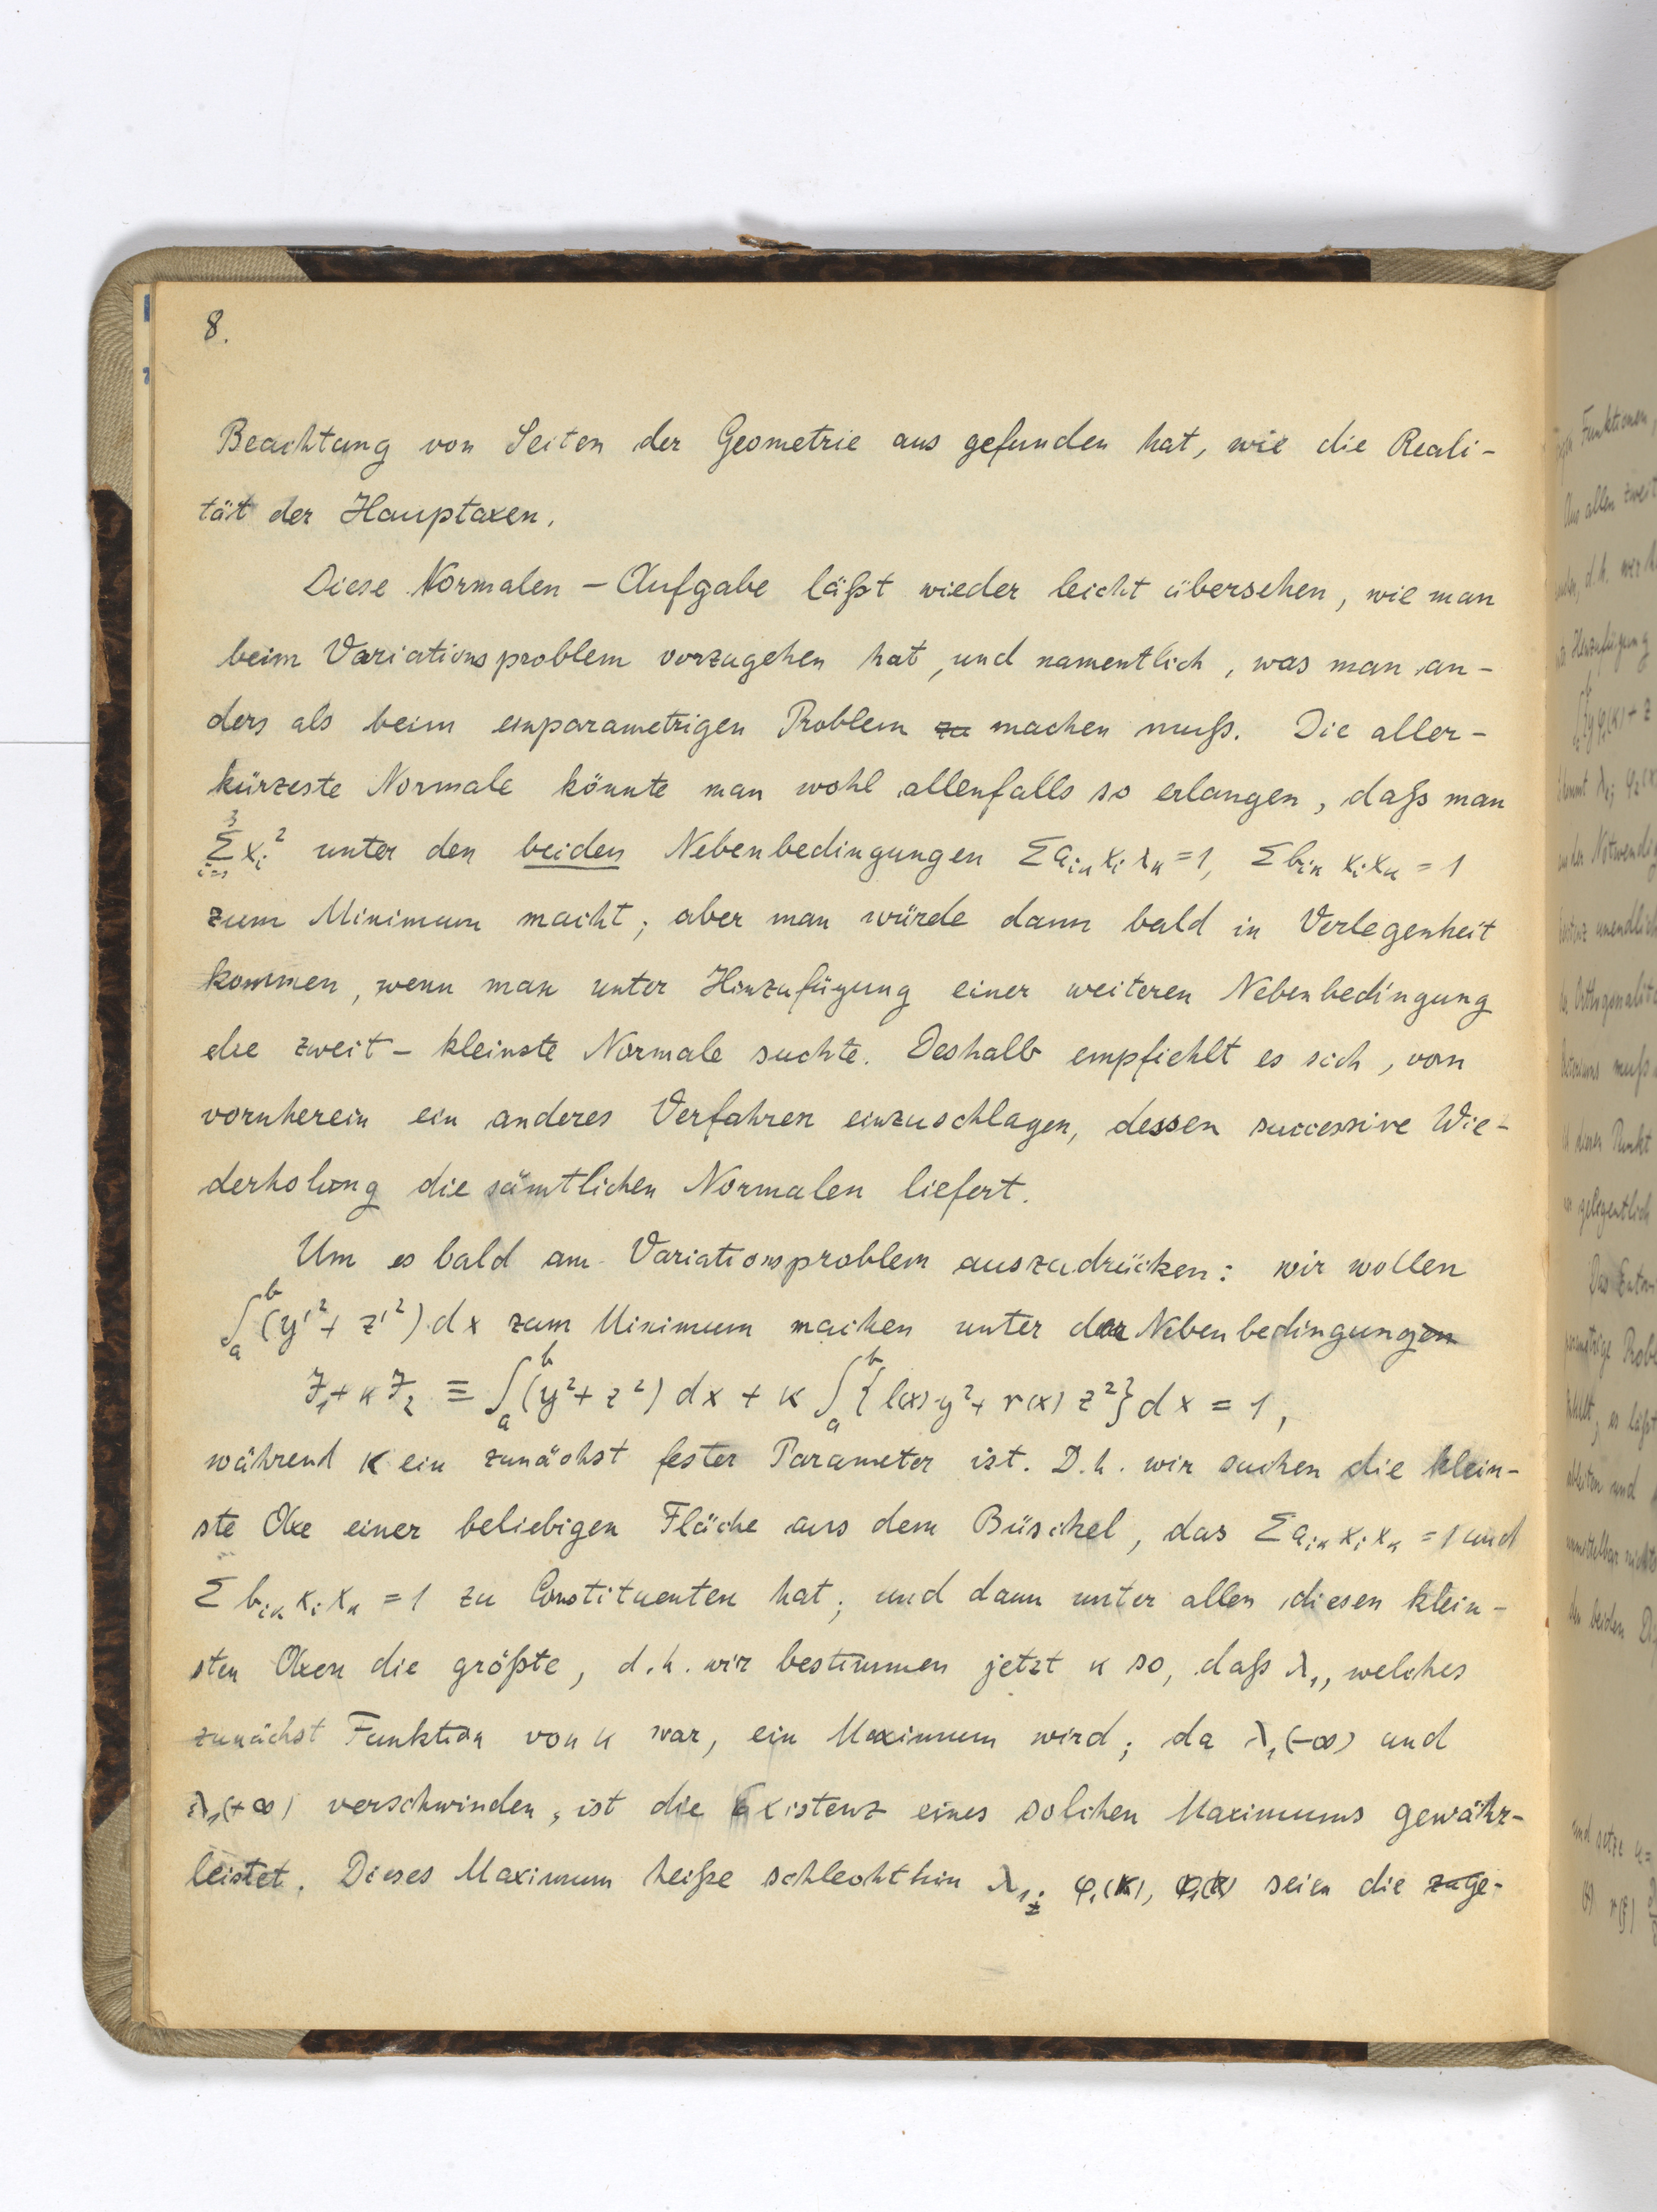 8.
Beachtung von Seiten der Geometrie aus gefunden hat, wie die Reali-
tät der Hauptaxen.
Diese Normalen - Aufgabe läßt wieder leicht übersehen, wie man
beim Variationsproblem vorzugehen hat, und namentlich, was man an-
ders als beim einparametrigen Problem zu machen muß. Die aller-
kürzeste Normale könnte man wohl allenfalls so erlangen, daß man
3 Σ i=1 x_i² unter den beiden Nebenbedingungen Σ a_iκ x_i x_κ = 1, Σ b_iκ x_i x_κ = 1
zum Minimum macht; aber man würde dann bald in Verlegenheit
kommen, wenn man unter Hinzufügung einer weiteren Nebenbedingung
die zweit - kleinste Normale suchte. Deshalb empfiehlt es sich, von
vornherein ein anderes Verfahren einzuschlagen, dessen successive Wie-
derholung die sämtlichen Normalen liefert.
Um es bald am Variationsproblem auszudrücken: wir wollen
∫_a^b (y'² + z'²) dx zum Minimum machen unter der Nebenbedingungen
J₁ + κ J₂ ≡ ∫_a^b (y² + z²) dx + κ ∫_a^b {l(x) y² + r(x) z²} dx = 1,
während κ ein zunächst fester Parameter ist. D.h. wir suchen die klein-
ste Axe einer beliebigen Fläche aus dem Büschel, das Σ a_iκ x_i x_κ = 1 und
Σ b_iκ x_i x_κ = 1 zu Constituenten hat; und dann unter allen diesen klein-
sten Axen die größte, d.h. wir bestimmen jetzt κ so, daß λ₁, welches
zunächst Funktion von κ war, ein Maximum wird; da λ₁(-∞) und
λ₁(+∞) verschwinden, ist die Existenz eines solchen Maximums gewähr-
leistet. Dieses Maximum heiße schlechthin λ₁; φ₁(x), seien die zuge-
Funktionen,
allen zweit
d.h. wir
Hinzufügung
Notwendig
unendlich
Orthogonalit
muß
Punkt
gelegentlich
Das
Probl
es läßt
und
beiden
und setze